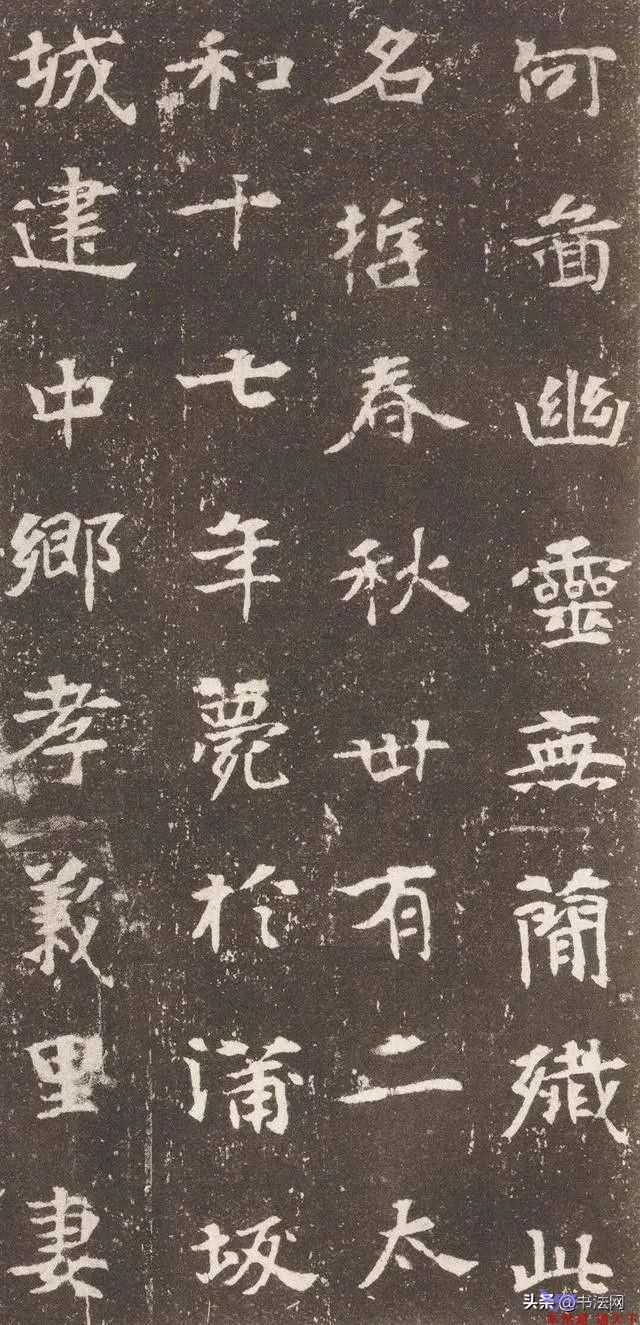 何啚幽靈無簡殲此
名哲春秋卌有二太
和十七年薨於蒲坂
城建中鄉孝義里妻
头条@书法网